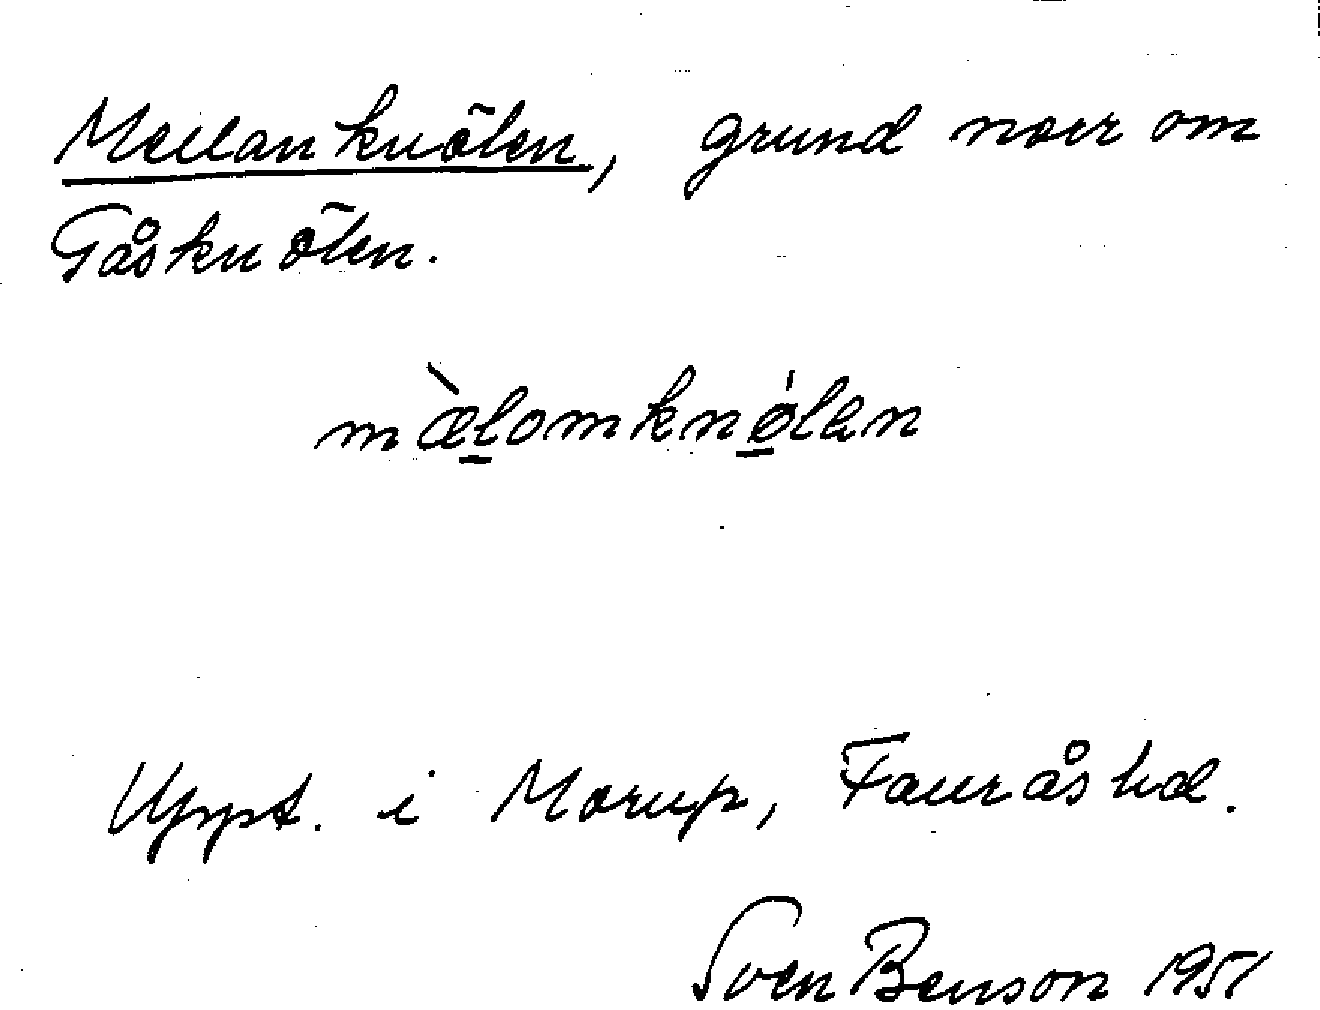 Mellanknölen, grund norr om
Gåsknölen.
mæ̀lomknǿlən
Uppt. i Morup, Faurås hd.
Sven Benson 1951